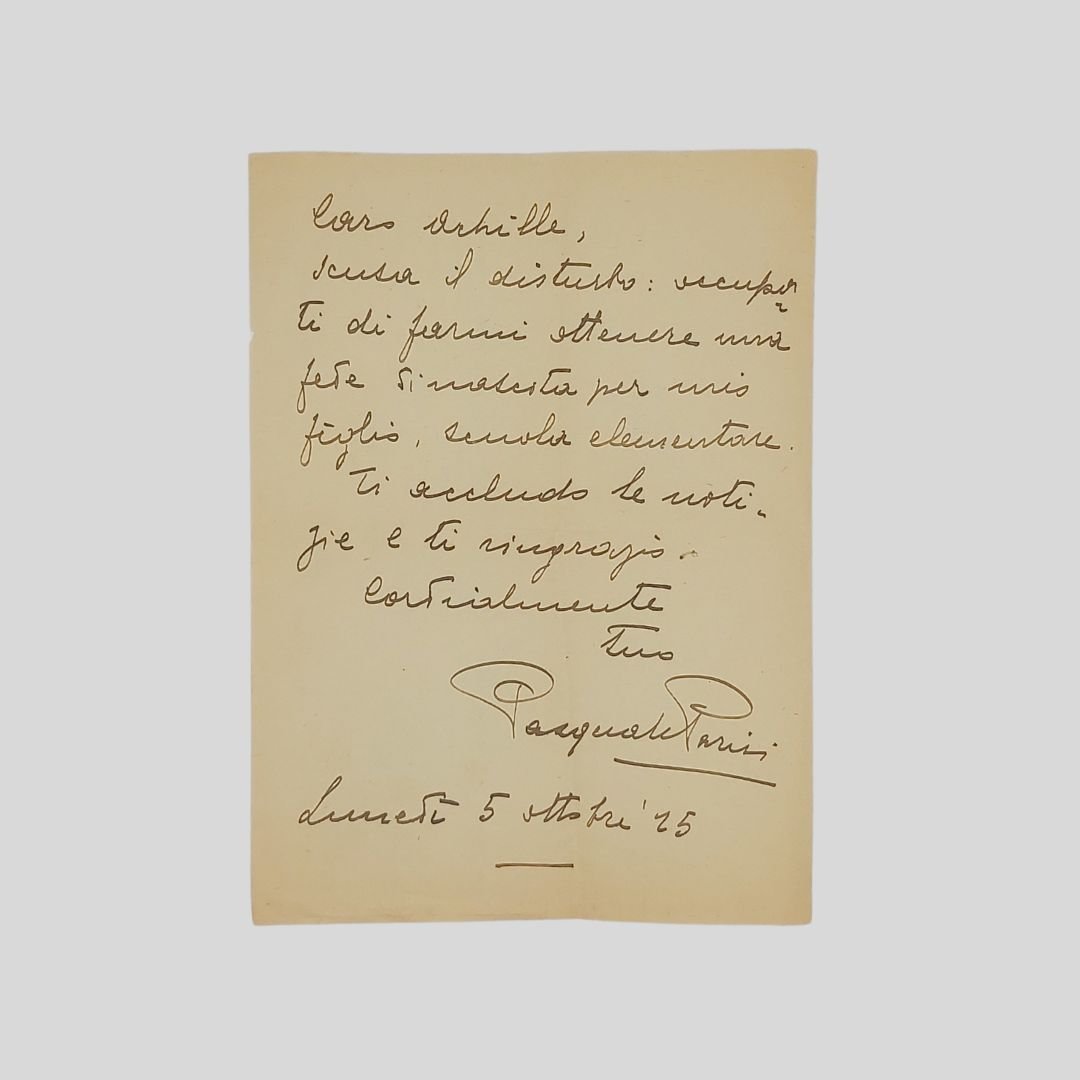 Caro Achille,
scusa il disturbo: occupa-
ti di farmi ottenere una
fede di nascita per mio
figlio, scuola elementare.
Ti accludo le noti-
zie e ti ringrazio.
Cordialmente
tuo
Pasquale Parisi
Lunedì 5 ottobre '25